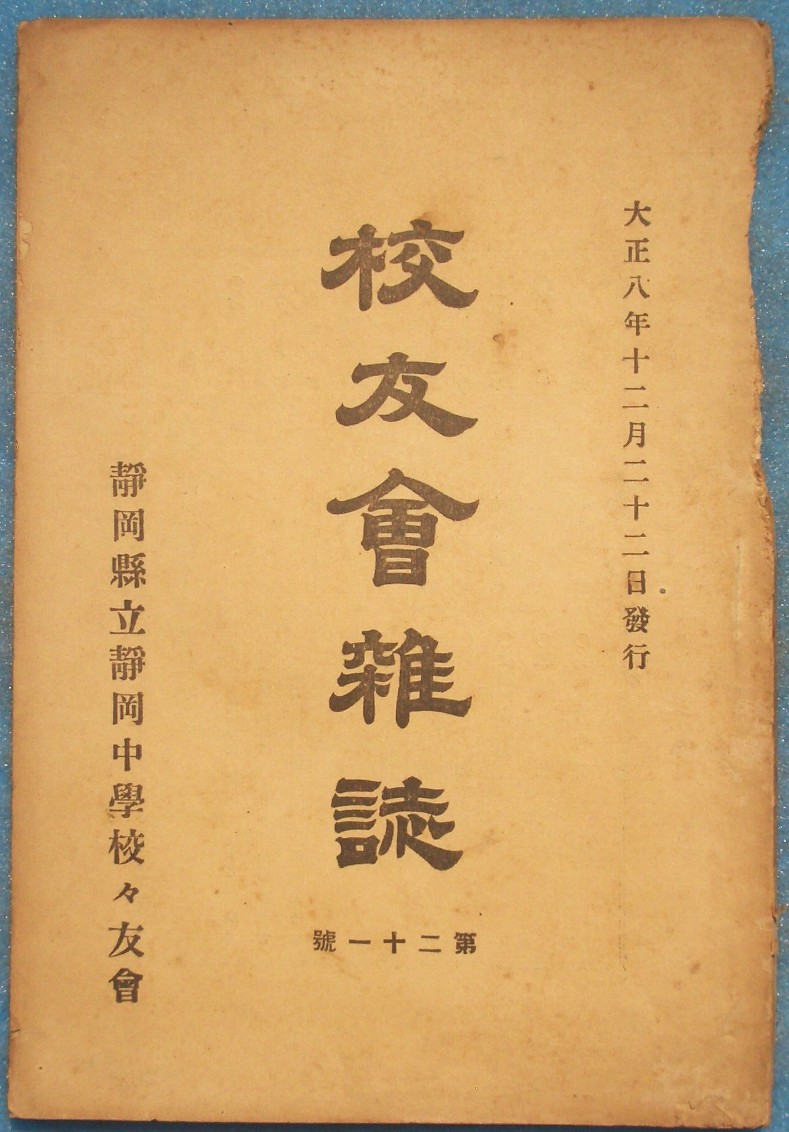 大正八年十二月二十二日發行
校友會雜誌
第二十一號
靜岡縣立靜岡中學校々友會